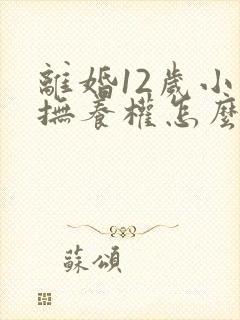 離婚12歲小
撫養權怎麼
蘇頌